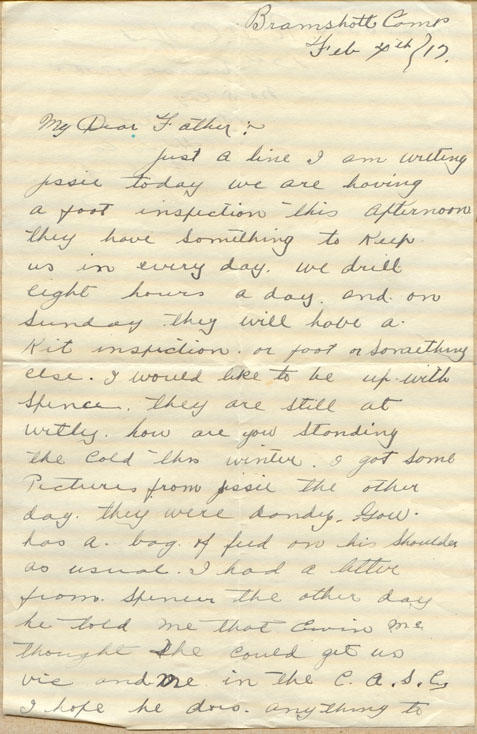 Bramshott Camp
Feb 4th/17.
My Dear Father :~
Just a line I am writing
Jssie today we are having
a foot inspection this afternoon
they have something to Keep
us in every day. we drill
eight hours a day. and on
Sunday they will have a
Kit inspiction. or foot or something
else. I would like to be up with
Spence. they are still at
witly. how are you standing
the Cold this winter. I got some
Pictures from Jssie the other
day. they were dandy.
has a bag of feed on his shoulder
as usual. I had a letter
from Spencer the other day
he told me that Mc
thought he could get us
vic and me in the C. A. S. C.
I hope he dors. anything to